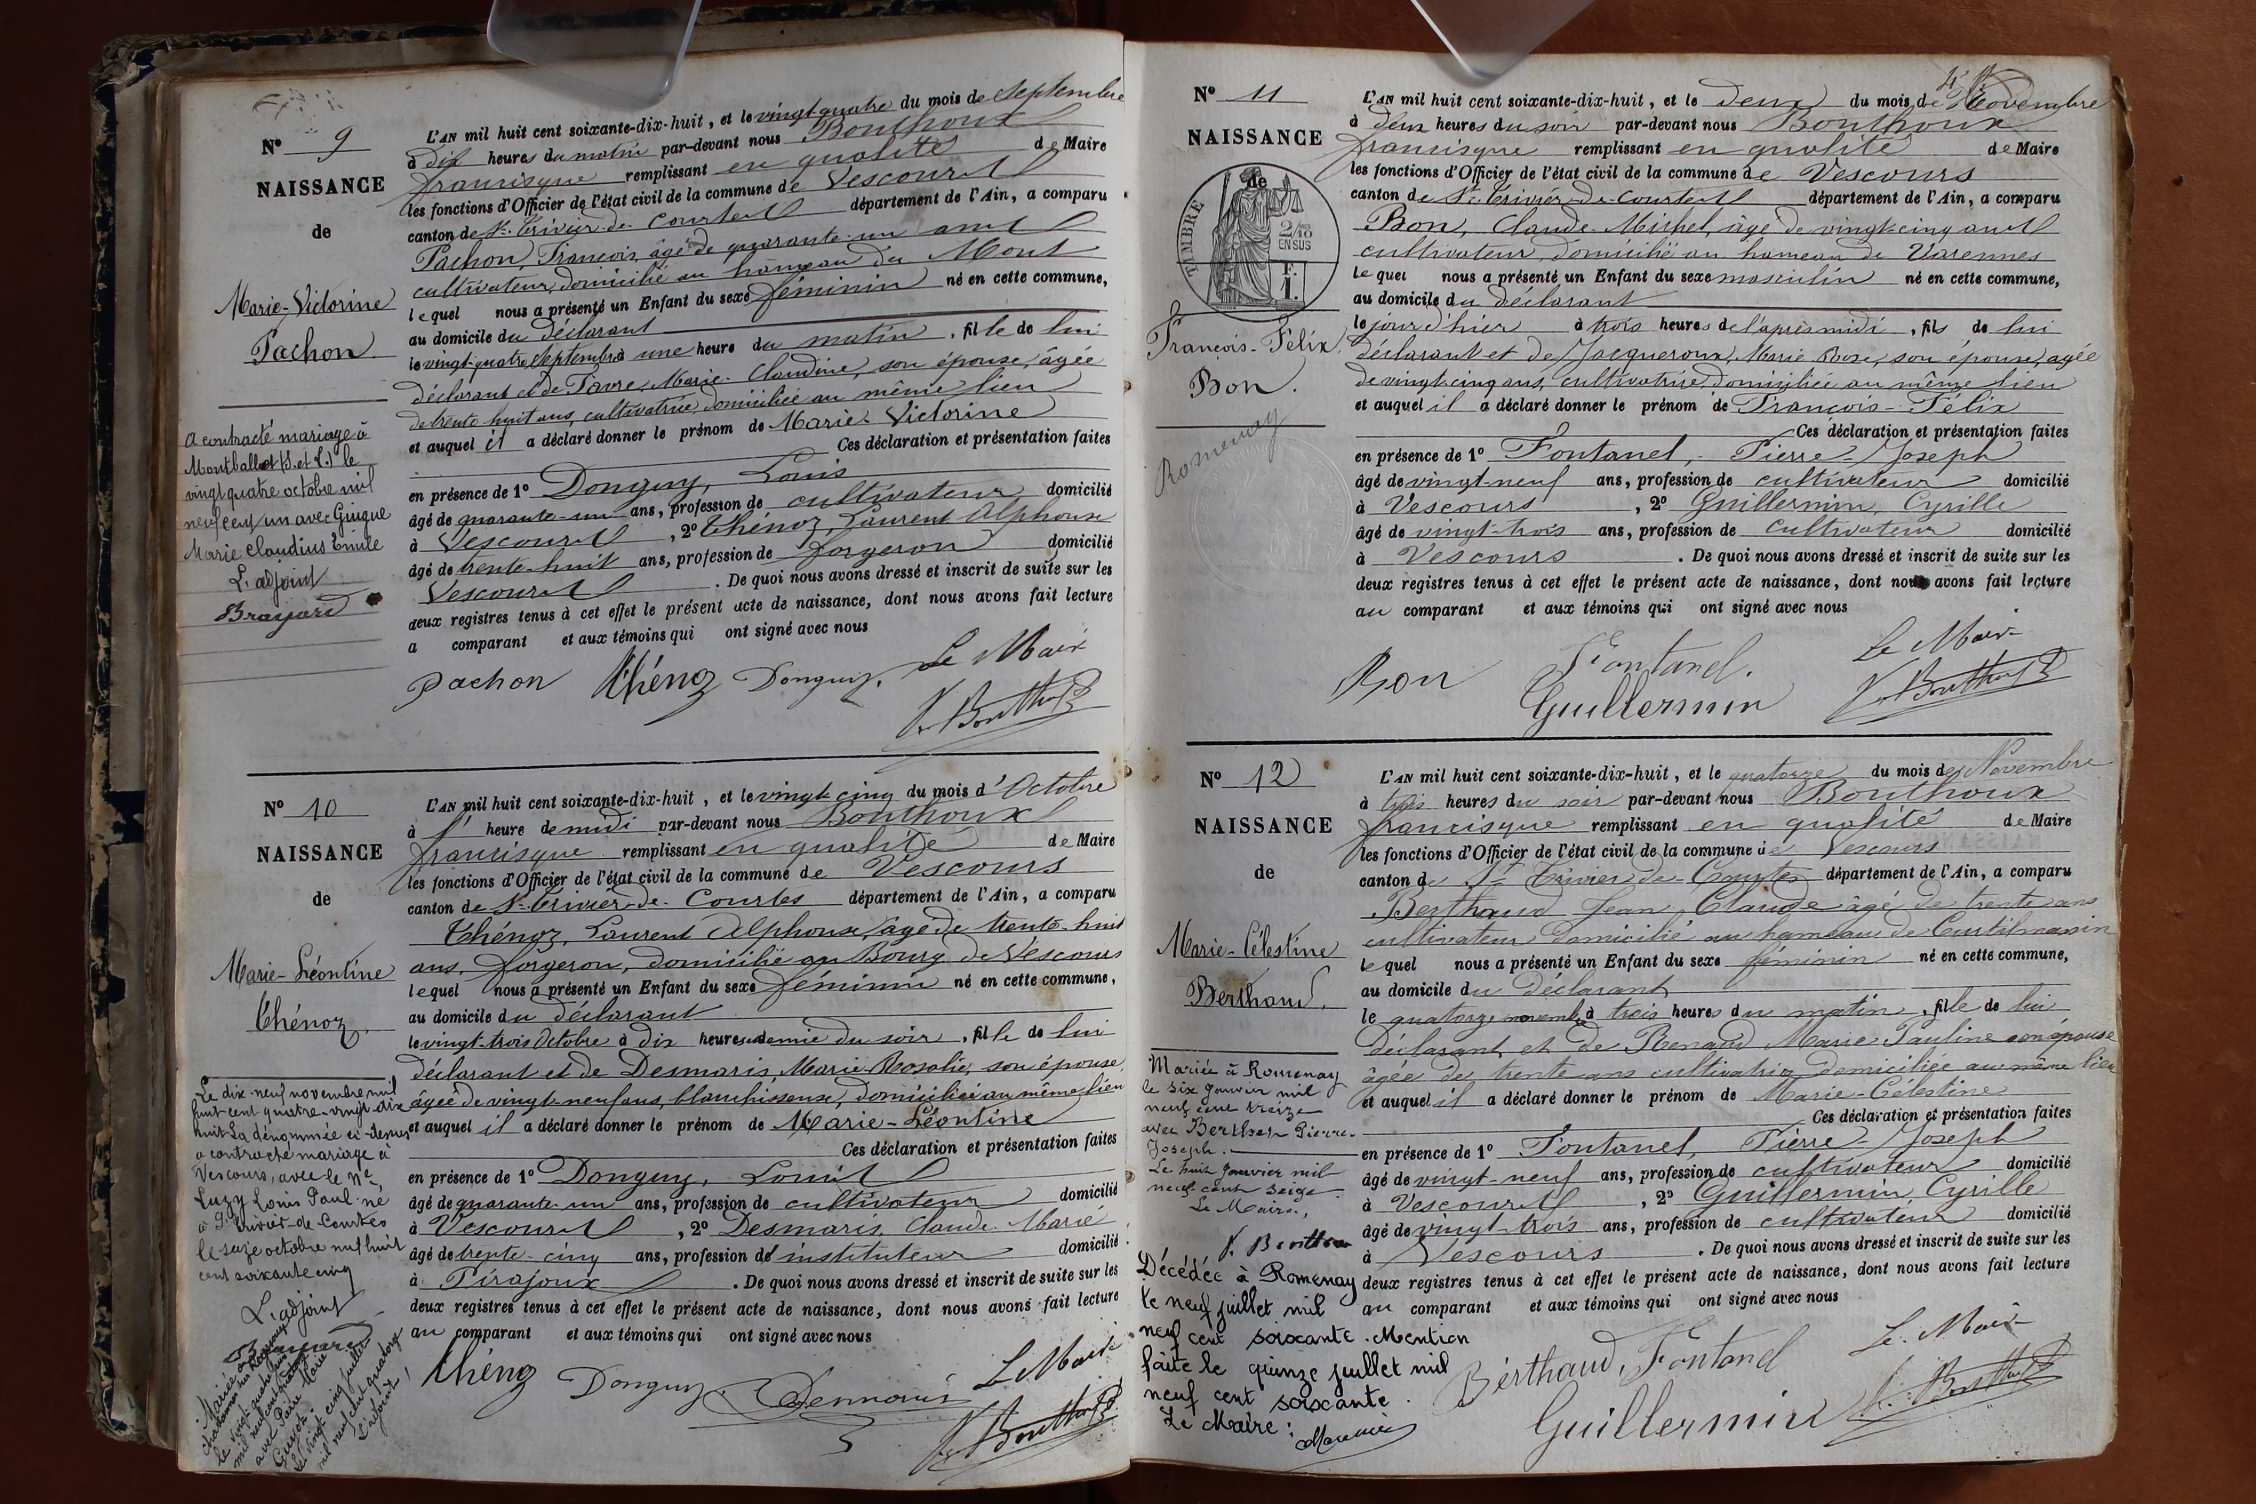 N° 9
NAISSANCE
de
Marie-Victorine
Pachon
A contracté mariage à
Montbellet (S. et L.) le
vingt quatre octobre mil
neuf cent un avec Giugue
Marie Claudius Emile
L'adjoint
Brayard
L'AN mil huit cent soixante-dix-huit, et le vingt quatre du mois de Septembre
à dix heures du matin par-devant nous Bouthoux
francisque remplissant en qualité de Maire
les fonctions d'Officier de l'état civil de la commune de Vescours
canton de St Trivier de Courtes département de l'Ain, a comparu
Pachon, François, âgé de quarante-un ans
cultivateur, domicilié au hameau du Mont
lequel nous a présenté un Enfant du sexe féminin né en cette commune,
au domicile du déclarant
le vingt-quatre Septembre à une heure du matin, fille de lui
déclarant et de Favre, Marie-Claudine, son épouse, âgée
de trente huit ans, cultivatrice, domiciliée au même lieu
et auquel il a déclaré donner le prénom de Marie-Victorine
Ces déclaration et présentation faites
en présence de 1° Donguy, Louis
âgé de quarante-un ans, profession de cultivateur domicilié
à Vescours, 2° Thénoz, Laurent Alphonse
âgé de trente-huit ans, profession de forgeron domicilié
Vescours. De quoi nous avons dressé et inscrit de suite sur les
deux registres tenus à cet effet le présent acte de naissance, dont nous avons fait lecture
a comparant et aux témoins qui ont signé avec nous
Pachon Thénoz Donguy. Le Maire
F. Bouthoux
N° 10
NAISSANCE
de
Marie-Léontine
Thénoz.
Le dix-neuf novembre mil
huit cent quatre-vingt-dix
huit La dénommée ci-dessus
a contracté mariage à
Vescours, avec le né
Luzy Louis Paul né
à St Trivier-de-Courtes
le seize octobre mil huit
cent soixante cinq
L'adjoint
Brayard
Mariée à
le vingt quatre juin
mil neuf cent quatorze
avec Marie
Guyot.
Le vingt cinq juillet
mil neuf cent quatorze
L'adjoint
L'AN mil huit cent soixante-dix-huit, et le vingt-cinq du mois d'Octobre
à l' heure de midi par-devant nous Bouthoux
francisque remplissant en qualité de Maire
les fonctions d'Officier de l'état civil de la commune de Vescours
canton de St Trivier-de-Courtes département de l'Ain, a comparu
Thénoz, Laurent Alphonse, âgé de trente-huit
ans, forgeron, domicilié au Bourg de Vescours
lequel nous a présenté un Enfant du sexe féminin né en cette commune,
au domicile du déclarant
le vingt-trois Octobre à dix heures et demie du soir, fille de lui
déclarant et de Desmaris, Marie-Rosalie, son épouse,
âgée de vingt-neuf ans, blanchisseuse, domiciliée au même lieu
et auquel il a déclaré donner le prénom de Marie-Léontine
Ces déclaration et présentation faites
en présence de 1° Donguy, Louis
âgé de quarante-un ans, profession de cultivateur domicilié
à Vescours, 2° Desmaris, Claude-Marie
âgé de trente-cinq ans, profession d'instituteur domicilié
à Pirajoux. De quoi nous avons dressé et inscrit de suite sur les
deux registres tenus à cet effet le présent acte de naissance, dont nous avons fait lecture
au comparant et aux témoins qui ont signé avec nous
Thénoz Donguy. Desmaris Le Maire
F. Bouthoux
N° 11
NAISSANCE
de
TIMBRE
2/10 EN SUS
F.
1.
François-Félix
Bon.
Romenay
L'AN mil huit cent soixante-dix-huit, et le deux du mois de Novembre
à deux heures du soir par-devant nous Bouthoux
francisque remplissant en qualité de Maire
les fonctions d'Officier de l'état civil de la commune de Vescours
canton de St Trivier-de-Courtes département de l'Ain, a comparu
Bon, Claude-Michel, âgé de vingt-cinq ans
cultivateur, domicilié au hameau de Varennes
lequel nous a présenté un Enfant du sexe masculin né en cette commune,
au domicile du déclarant
le jour d'hier à trois heures de l'après midi, fils de lui
déclarant et de Jacqueroux, Marie Rose, son épouse, agée
de vingt-cinq ans, cultivatrice, domiciliée au même lieu
et auquel il a déclaré donner le prénom de François-Félix
Ces déclaration et présentation faites
en présence de 1° Fontanel, Pierre-Joseph
âgé de vingt-neuf ans, profession de cultivateur domicilié
à Vescours, 2° Guillermin, Cyrille
âgé de vingt-trois ans, profession de cultivateur domicilié
à Vescours. De quoi nous avons dressé et inscrit de suite sur les
deux registres tenus à cet effet le présent acte de naissance, dont nous avons fait lecture
au comparant et aux témoins qui ont signé avec nous
Bon Fontanel. Le Maire
Guillermin F. Bouthoux
N° 12
NAISSANCE
de
Marie-Célestine
Berthaud.
Mariée à Romenay
le six janvier mil
neuf cent treize
avec Berthet Pierre-
Joseph.
Le huit janvier mil
neuf cent seize
Le Maire,
F. Bouthoux
Décédée à Romenay
le neuf juillet mil
neuf cent soixante. Mention
faite le quinze juillet mil
neuf cent soixante.
Le Maire :
L'AN mil huit cent soixante-dix-huit, et le quatorze du mois de Novembre
à trois heures du soir par-devant nous Bouthoux
francisque remplissant en qualité de Maire
les fonctions d'Officier de l'état civil de la commune de Vescours
canton de St Trivier-de-Courtes département de l'Ain, a comparu
Berthaud Jean Claude âgé de trente ans
cultivateur domicilié au hameau de Curtilmassin
lequel nous a présenté un Enfant du sexe féminin né en cette commune,
au domicile du déclarant
le quatorze novembre à trois heures du matin, fille de lui
déclarant et de Renaud Marie Pauline son épouse
âgée de trente ans cultivatrice domiciliée au même lieu
et auquel il a déclaré donner le prénom de Marie-Célestine
Ces déclaration et présentation faites
en présence de 1° Fontanel, Pierre-Joseph
âgé de vingt-neuf ans, profession de cultivateur domicilié
à Vescours, 2° Guillermin, Cyrille
âgé de vingt-trois ans, profession de cultivateur domicilié
à Vescours. De quoi nous avons dressé et inscrit de suite sur les
deux registres tenus à cet effet le présent acte de naissance, dont nous avons fait lecture
au comparant et aux témoins qui ont signé avec nous
Bérthaud, Fontanel Le Maire
Guillermin F. Bouthoux